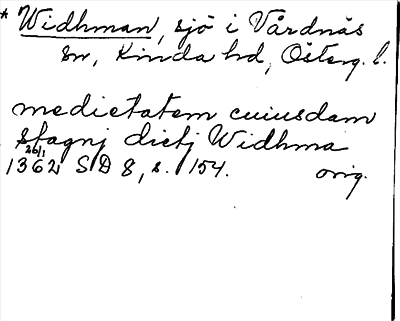 * Widhman, sjö i Vårdnäs
sn, Kinda hd, Österg. l.
medietatem cuiusdam
stagnj dictj Widhma
26/1 1362 SD 8, s. 154. orig.